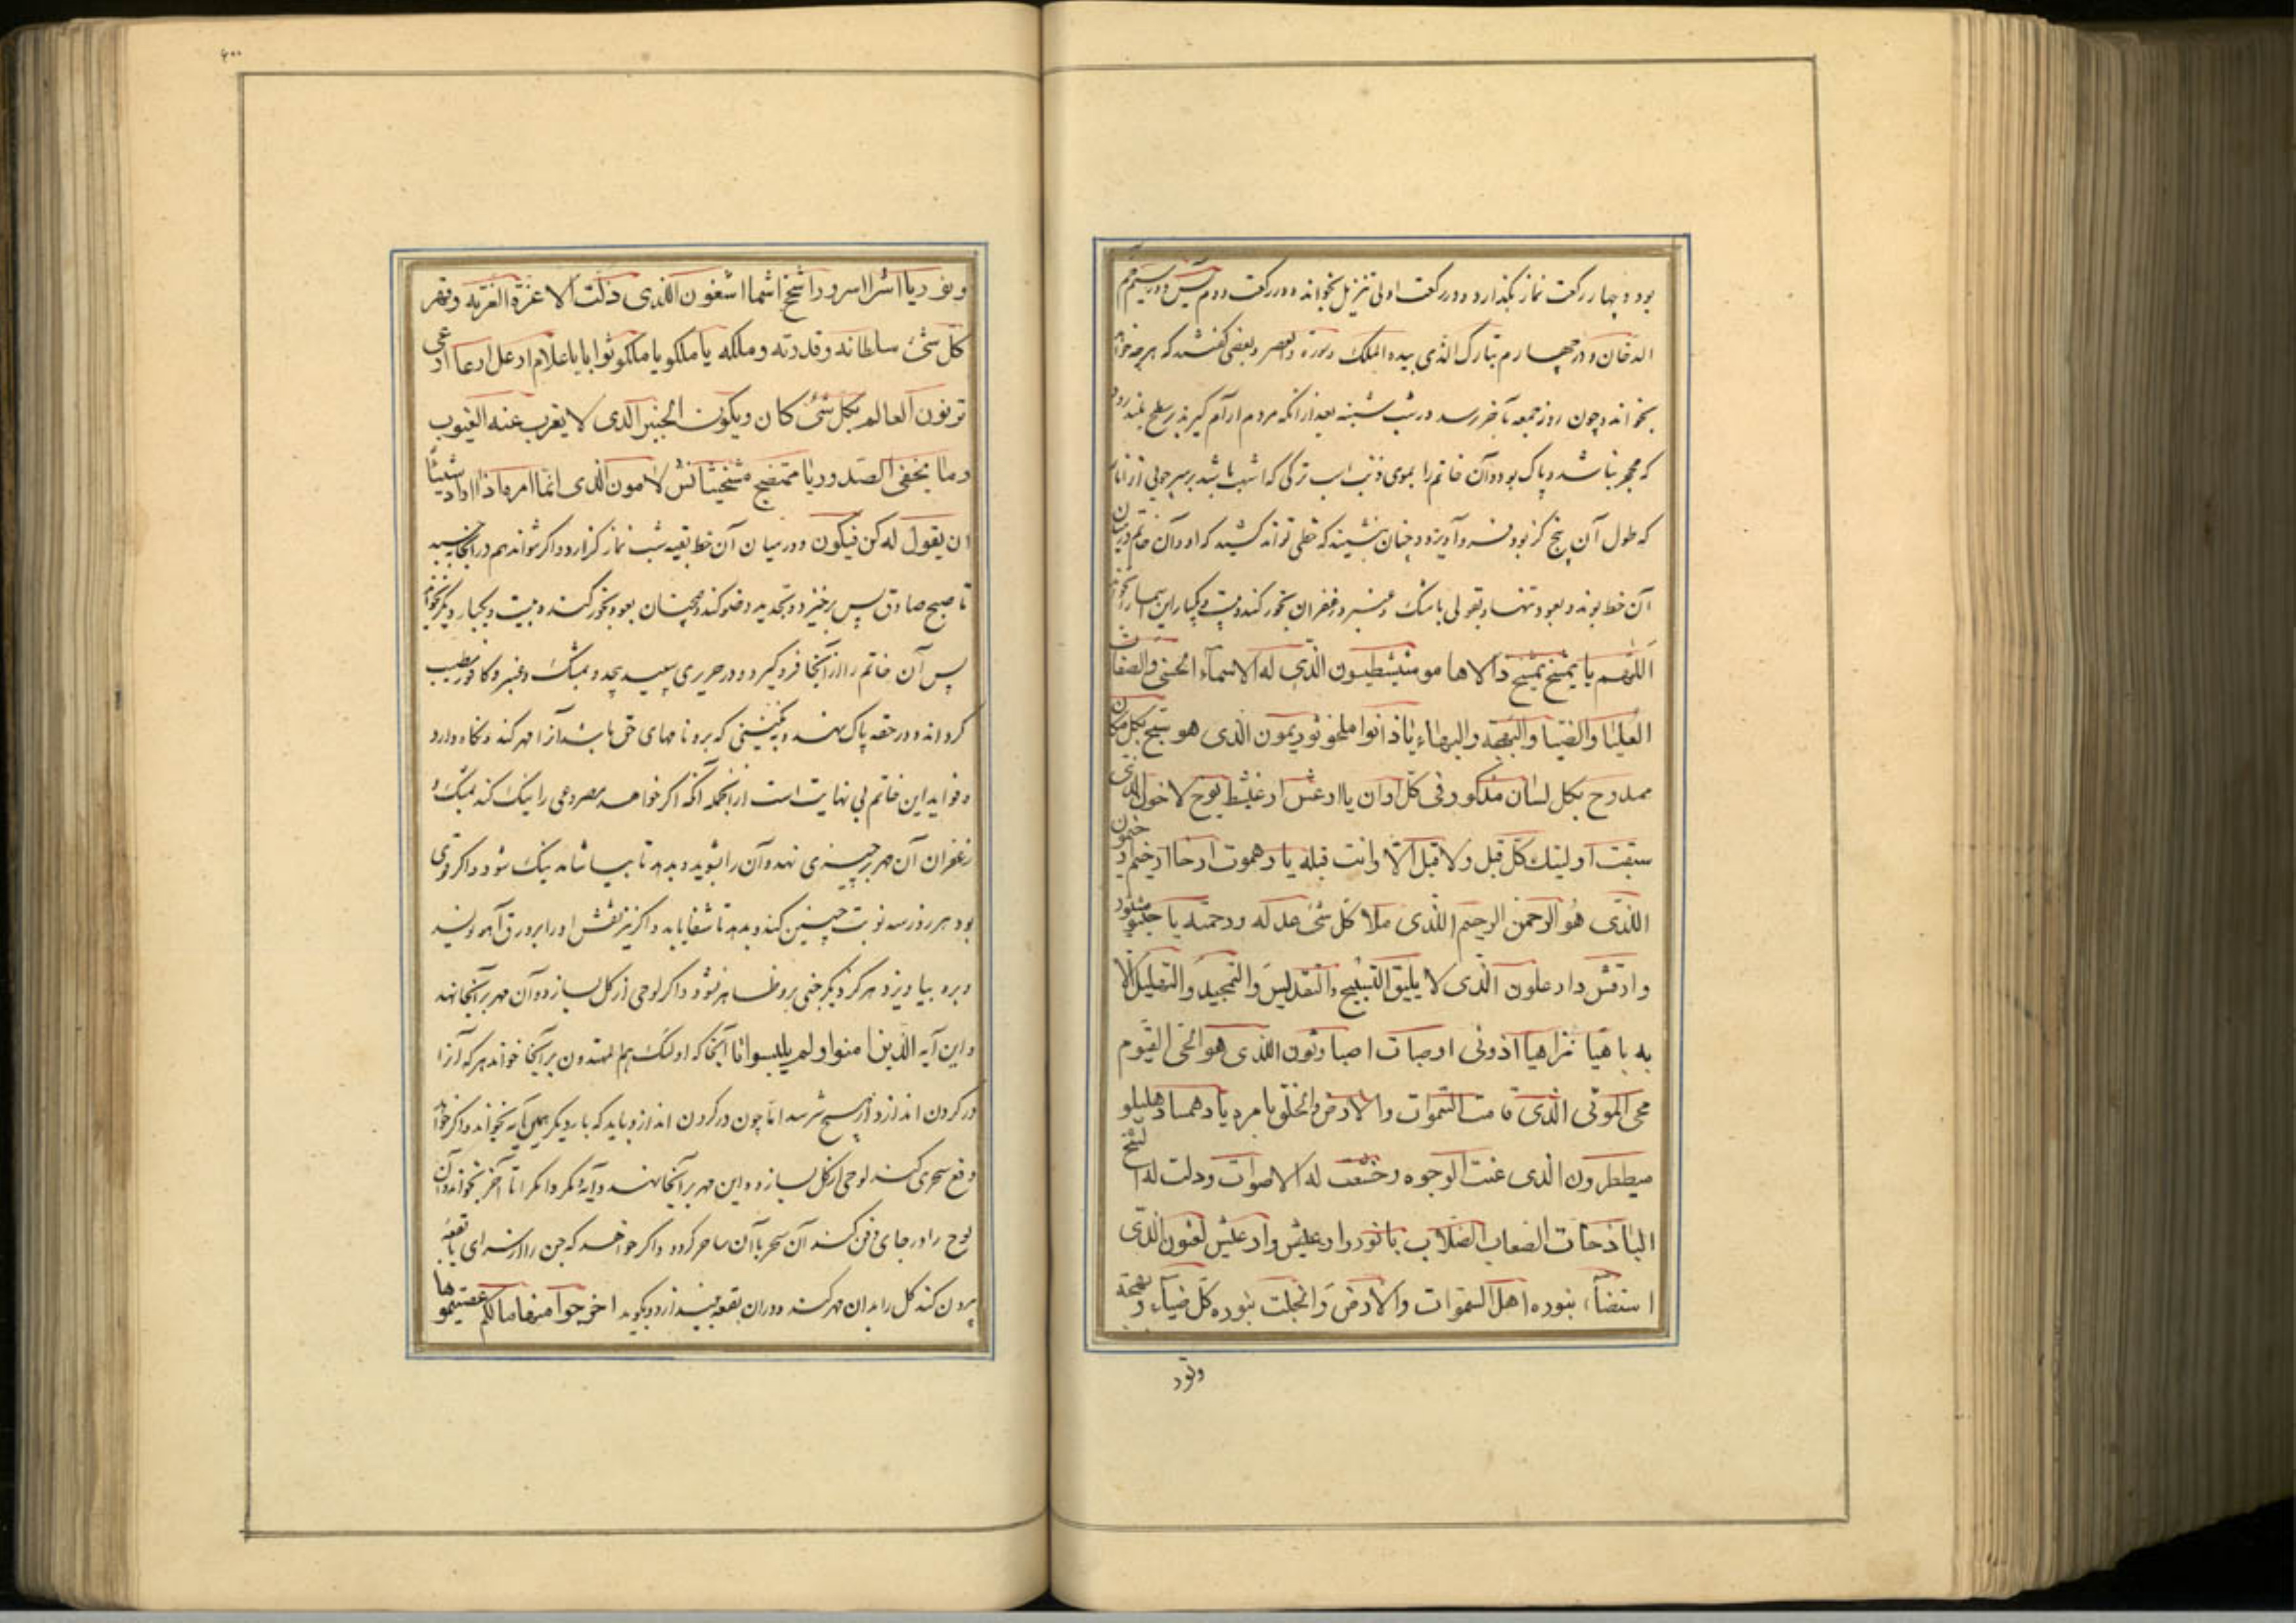 بود و چهار رکعت نماز بگذارد و در رکعت اولی تنزیل بخواند و در رکعت دوم یس و در سیم حم
الدخان و در چهارم تبارک الذی بیده الملک و سوره والعصر و بعضی گفته‌اند که هر چه خواهد
بخواند و چون روز جمعه بآخر رسد در شب شنبه بعد از آنکه مردم آرام گیرند بر سطح بلند رود
که محجر نباشد و پاک بود و آن خاتم را بموی ذنب اسب ترکی که اشهب باشد بر سر چوبی از انار
که طول آن پنج گز بود فرو آویزد و چنان بنشیند که خطی تواند کشید که او و آن خاتم در میان
آن خط بوند و بعود تنها و بقولی با مشک و عنبر و زعفران بخور کند و بیست و یکبار این اسما را بخواند
اللهم یا یمتیخ یمتیخ دالاها مو منیشطیون الذی له الاسماء الحسنی والصفات
العلیا والضیا والبهجة والبهاء یا ذانوا ملخوثو دیمون الذی هو یسبح بکل مکان
ممدوح بکل لسان مذکور فی کل اوان یا ارعش ارغیشط یوح لاخول الذی
سبقت اولیتک کل قبل ولا قبل الا وانت قبله یا رهموت ارخا ارخیم خیمون
الذی هو الرحمن الرحیم الذی ملا کل شئ عدله ورحمته یا
وارقش دار علون الذی لا یلیق التسبیح والتقدیس والتمجید والتهلیل الا
به یا هیا شراهیا اذونی اصباوت اصباوثون الذی هو الحی القیوم
محی الموتی الذی قامت السموات والارض والخلق بامره یا دهما دهلیلو
میططرون الذی عنت الوجوه وخشعت له الاصوات وذلت له الشمخ
الباذخات الصعاب الصلاب یا نوروا رعیش وارعلیش لغون الذی
استضاء بنوره اهل السموات والارض وانجلت بنوره کل ضیاء وبهجة
ونور
۴۰۰
ونور یا اشرا اسرو را شخ اشما اشغون الذی ذلت الا عزة لعزته وقهر
کل شئ سلطانه وقدرته وملکه یا ملکو یا ملکوثوا یا یا علام ارعل ارعا ارعی
ترنون العالم بکل شئ کان ویکون الخبیر الذی لا یعزب عنه الغیوب
وما یخفی الصدور یا ممتضخ مشخیثا نش لامون الذی انما امره اذا اراد شیئا
ان یقول له کن فیکون و در میان آن خط بقیه شب نماز گزارد و اگر تواند هم در آنجا بخسبد
تا صبح صادق پس برخیزد و تجدید وضو کند و همچنان بعود بخور کند و بیست و یکبار دیگر بخواند
پس آن خاتم را از آنجا فرو گیرد و در حریری سپید پیچد و بمشک و عنبر و کافور مطیب
گرداند و در حقه پاک نهد و بنگینی که برو نامهای حق باشد آنرا مهر کند و نگاه دارد
و فواید این خاتم بی نهایت است از آنجمله آنکه اگر خواهد مصروعی را نیک کند بمشک و
زعفران آن مهر بر چیزی نهد و آن را بشوید و بدهد تا بیاشامد نیک شود و اگر قوی
بود هر روز سه نوبت چنین کند و بدهد تا شفا یابد و اگر نیز نقش او را بر ورق آهو نویسد
و برو بیاویزد هرگز دیگر جنی برو ظاهر نشود و اگر لوحی از گل بسازد و آن مهر بر آنجا نهد
و این آیه الذین امنوا ولم یلبسوا تا آنجا که اولئک هم المهتدون بر آنجا خواند هر که آن را
در گردن اندازد از هیچ نترسد اما چون در گردن اندازد باید که بار دیگر همین آیه بخواند و اگر خواهد
دفع سحری کند لوحی از گل بسازد و این مهر بر آنجا نهد و آیه مکر و امکرا تا آخر بخواند و آن
لوح را در جای دفن کند آن سحر با آن ساحر گردد و اگر خواهد که جن را از سرای یا بقعه
بیرون کند گل را بدان مهر کند و در آن بقعه بیندازد و بگوید اخرجوا منها